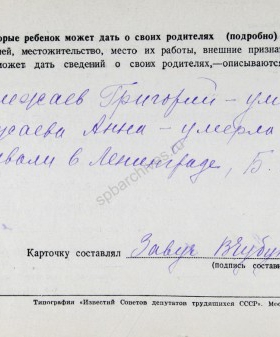 орые ребенок может дать о своих родителях (подробно)
ей, местожительство, место их работы, внешние призна
может дать сведений о своих родителях,—описываются
Григорий - ум
аева Анна - умерла
вали в Ленинграде, Б.
spbarchives.ru
Карточку составлял Завуч
(подпись состав
Типография «Известий Советов депутатов трудящихся СССР». Мос